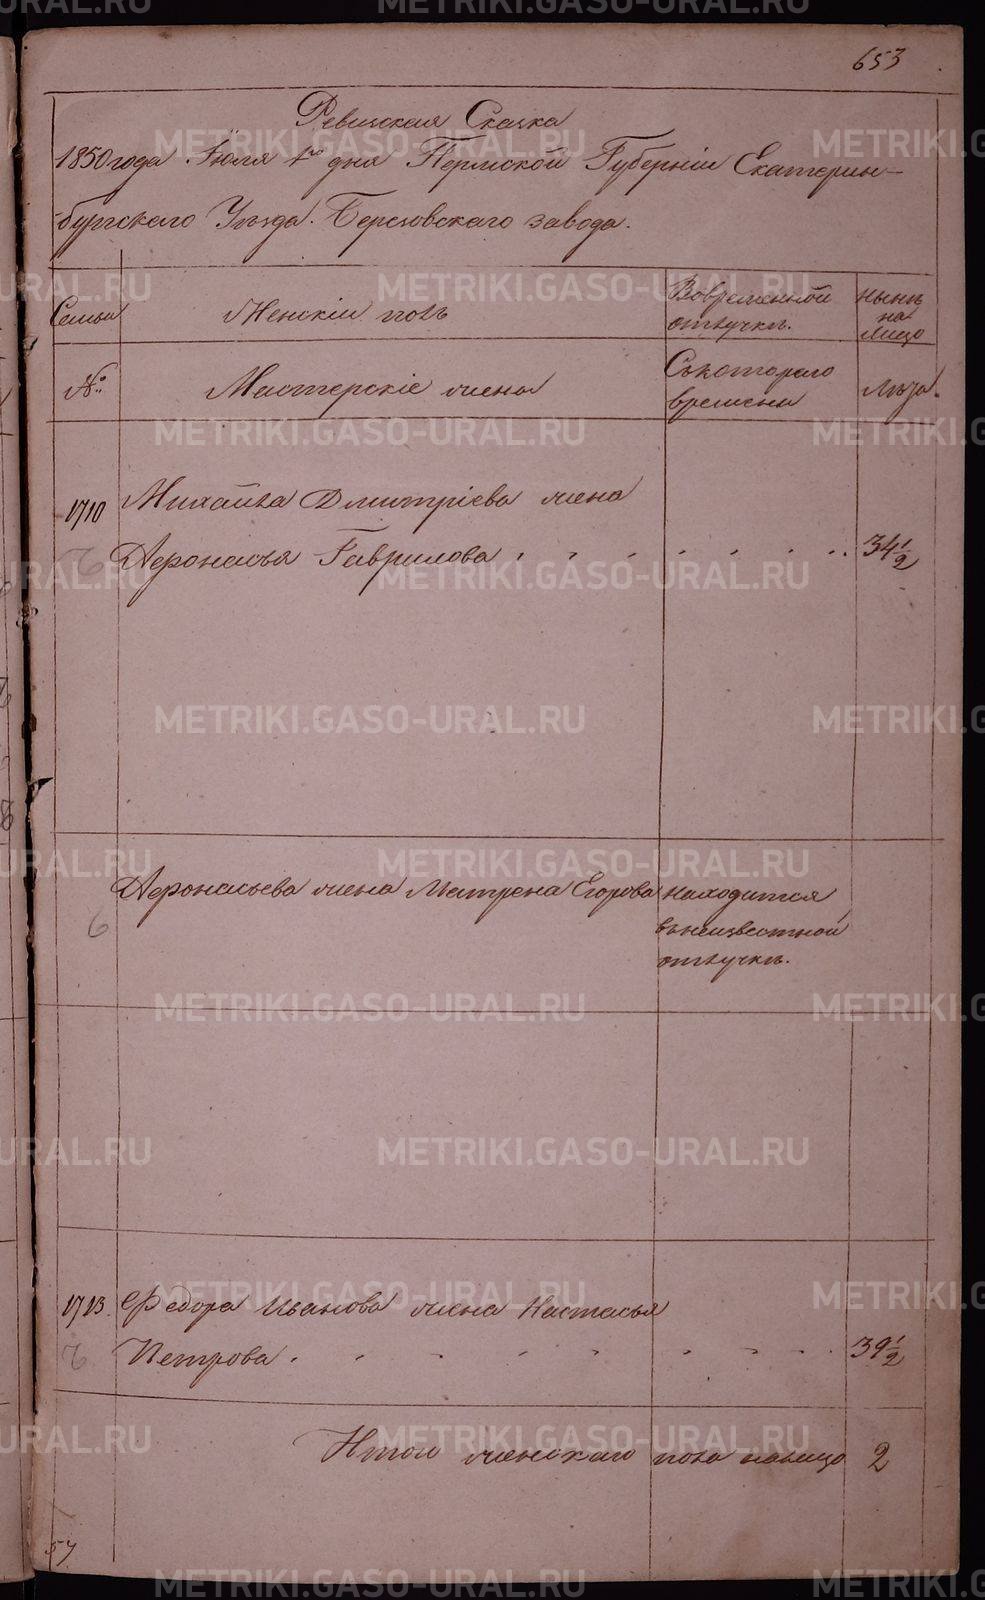 653
Ревизская Сказка
1850 года Іюля 1го дня Пермской Губерніи Екатерин-
бургскаго Уѣзда. Березовскаго завода.
Семьи
Женскій полъ
Вовременной
отлучкѣ.
Нынѣ
на
лицо
№
Мастерскіе жена
Съкотораго
времени
Лѣта.
1710
Михайла Дмитріева жена
Афонасья Гаврилова
34 1/2
Афонасьева жена Матрена Егорова находится
6
въ неизвестной
отлучкѣ.
1713
Федора Иванова жена Настасья
Петрова
39 1/2
Итого женскаго пола налицо 2
57
METRIKI.GASO-URAL.RU